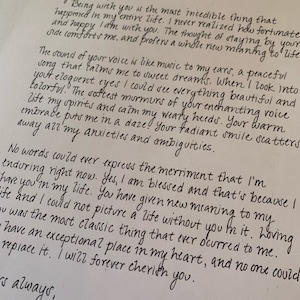 Being with you is the most incedible thing that
happened in my entire life. I never realized how fortunate
and happy I am with you. The thought of staying by your
side comforts me, and profers a whole new meaning to life
The sound of your voice is like music to my ears, a peaceful
song that calms me to sweet dreams. When I look into
your eloquent eyes I could see everything beautiful and
colorful. The softest mormurs of your enchanting voice
lift my spirits and calm my weary heeds. Your warm
embrace puts me in a daze. Your radiant smile scatters
away all my anxieties and ambiguities.
No words could ever express the merriment that I'm
enduring right now. Yes, I am blessed and that's because I
have you in my life. You have given new meaning to my
life and I could not picture a life without you in it. Loving
you was the most classic thing that ever ocurred to me.
have an exceptional place in my heart, and no one could
replace it. I will forever cherish you.
rs always,